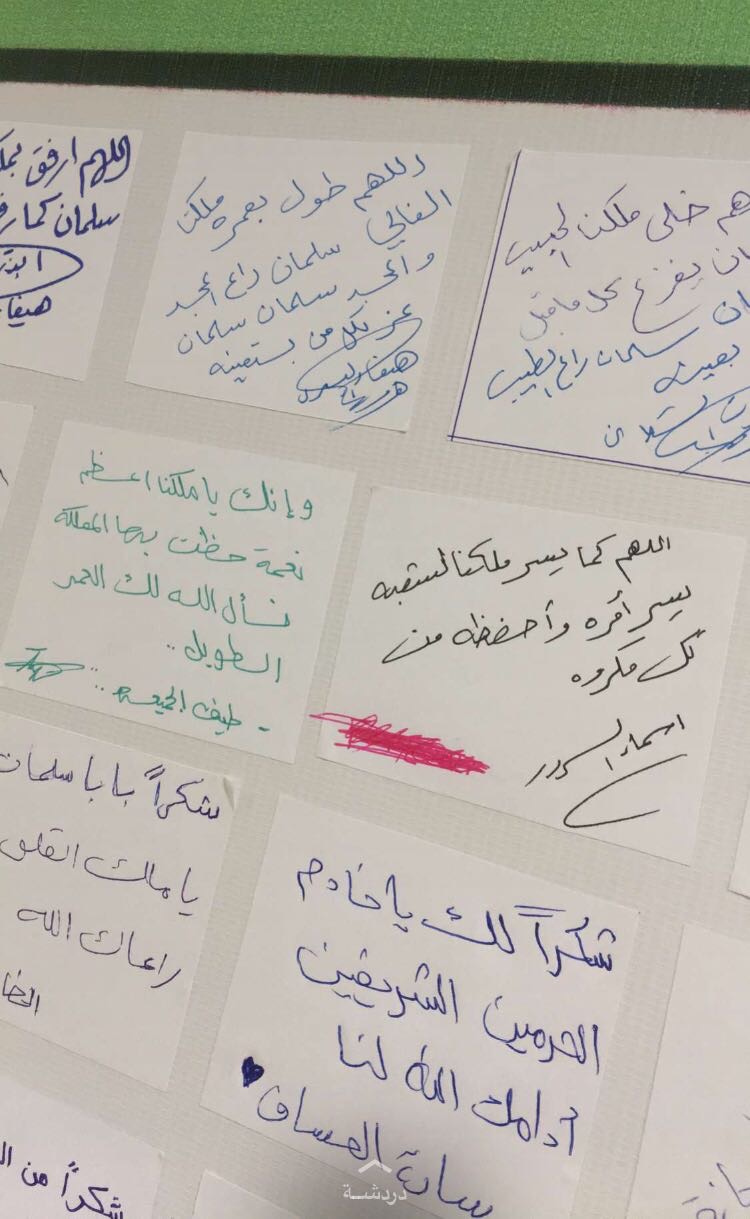 اللهم ارفق
سلمان كما
هيفا
اللهم طول بعمر ملكنا
الغالي سلمان راع المجد
والمجد سلمان سلمان
عز لكل من يستعينه
خلى ملكنا الحبيب
يفزع بكل ماقيل
سلمان راع الطيب
وإنك ياملكنا اعظم
نعمة حظت بها المملكة
نسأل الله لك العمر
الطويل ..
- طيف الجميعه ..
اللهم كما يسر ملكنا لشعبه
يسر أمره وأحفظه من
كل مكروه
اسماء السرور
شكراً بابا سلمان
ياملك القلو
راعاك الله
شكراً لك ياخادم
الحرمين الشريفين
أدامك الله لنا
سارة العساف
شكراً من
دردشة